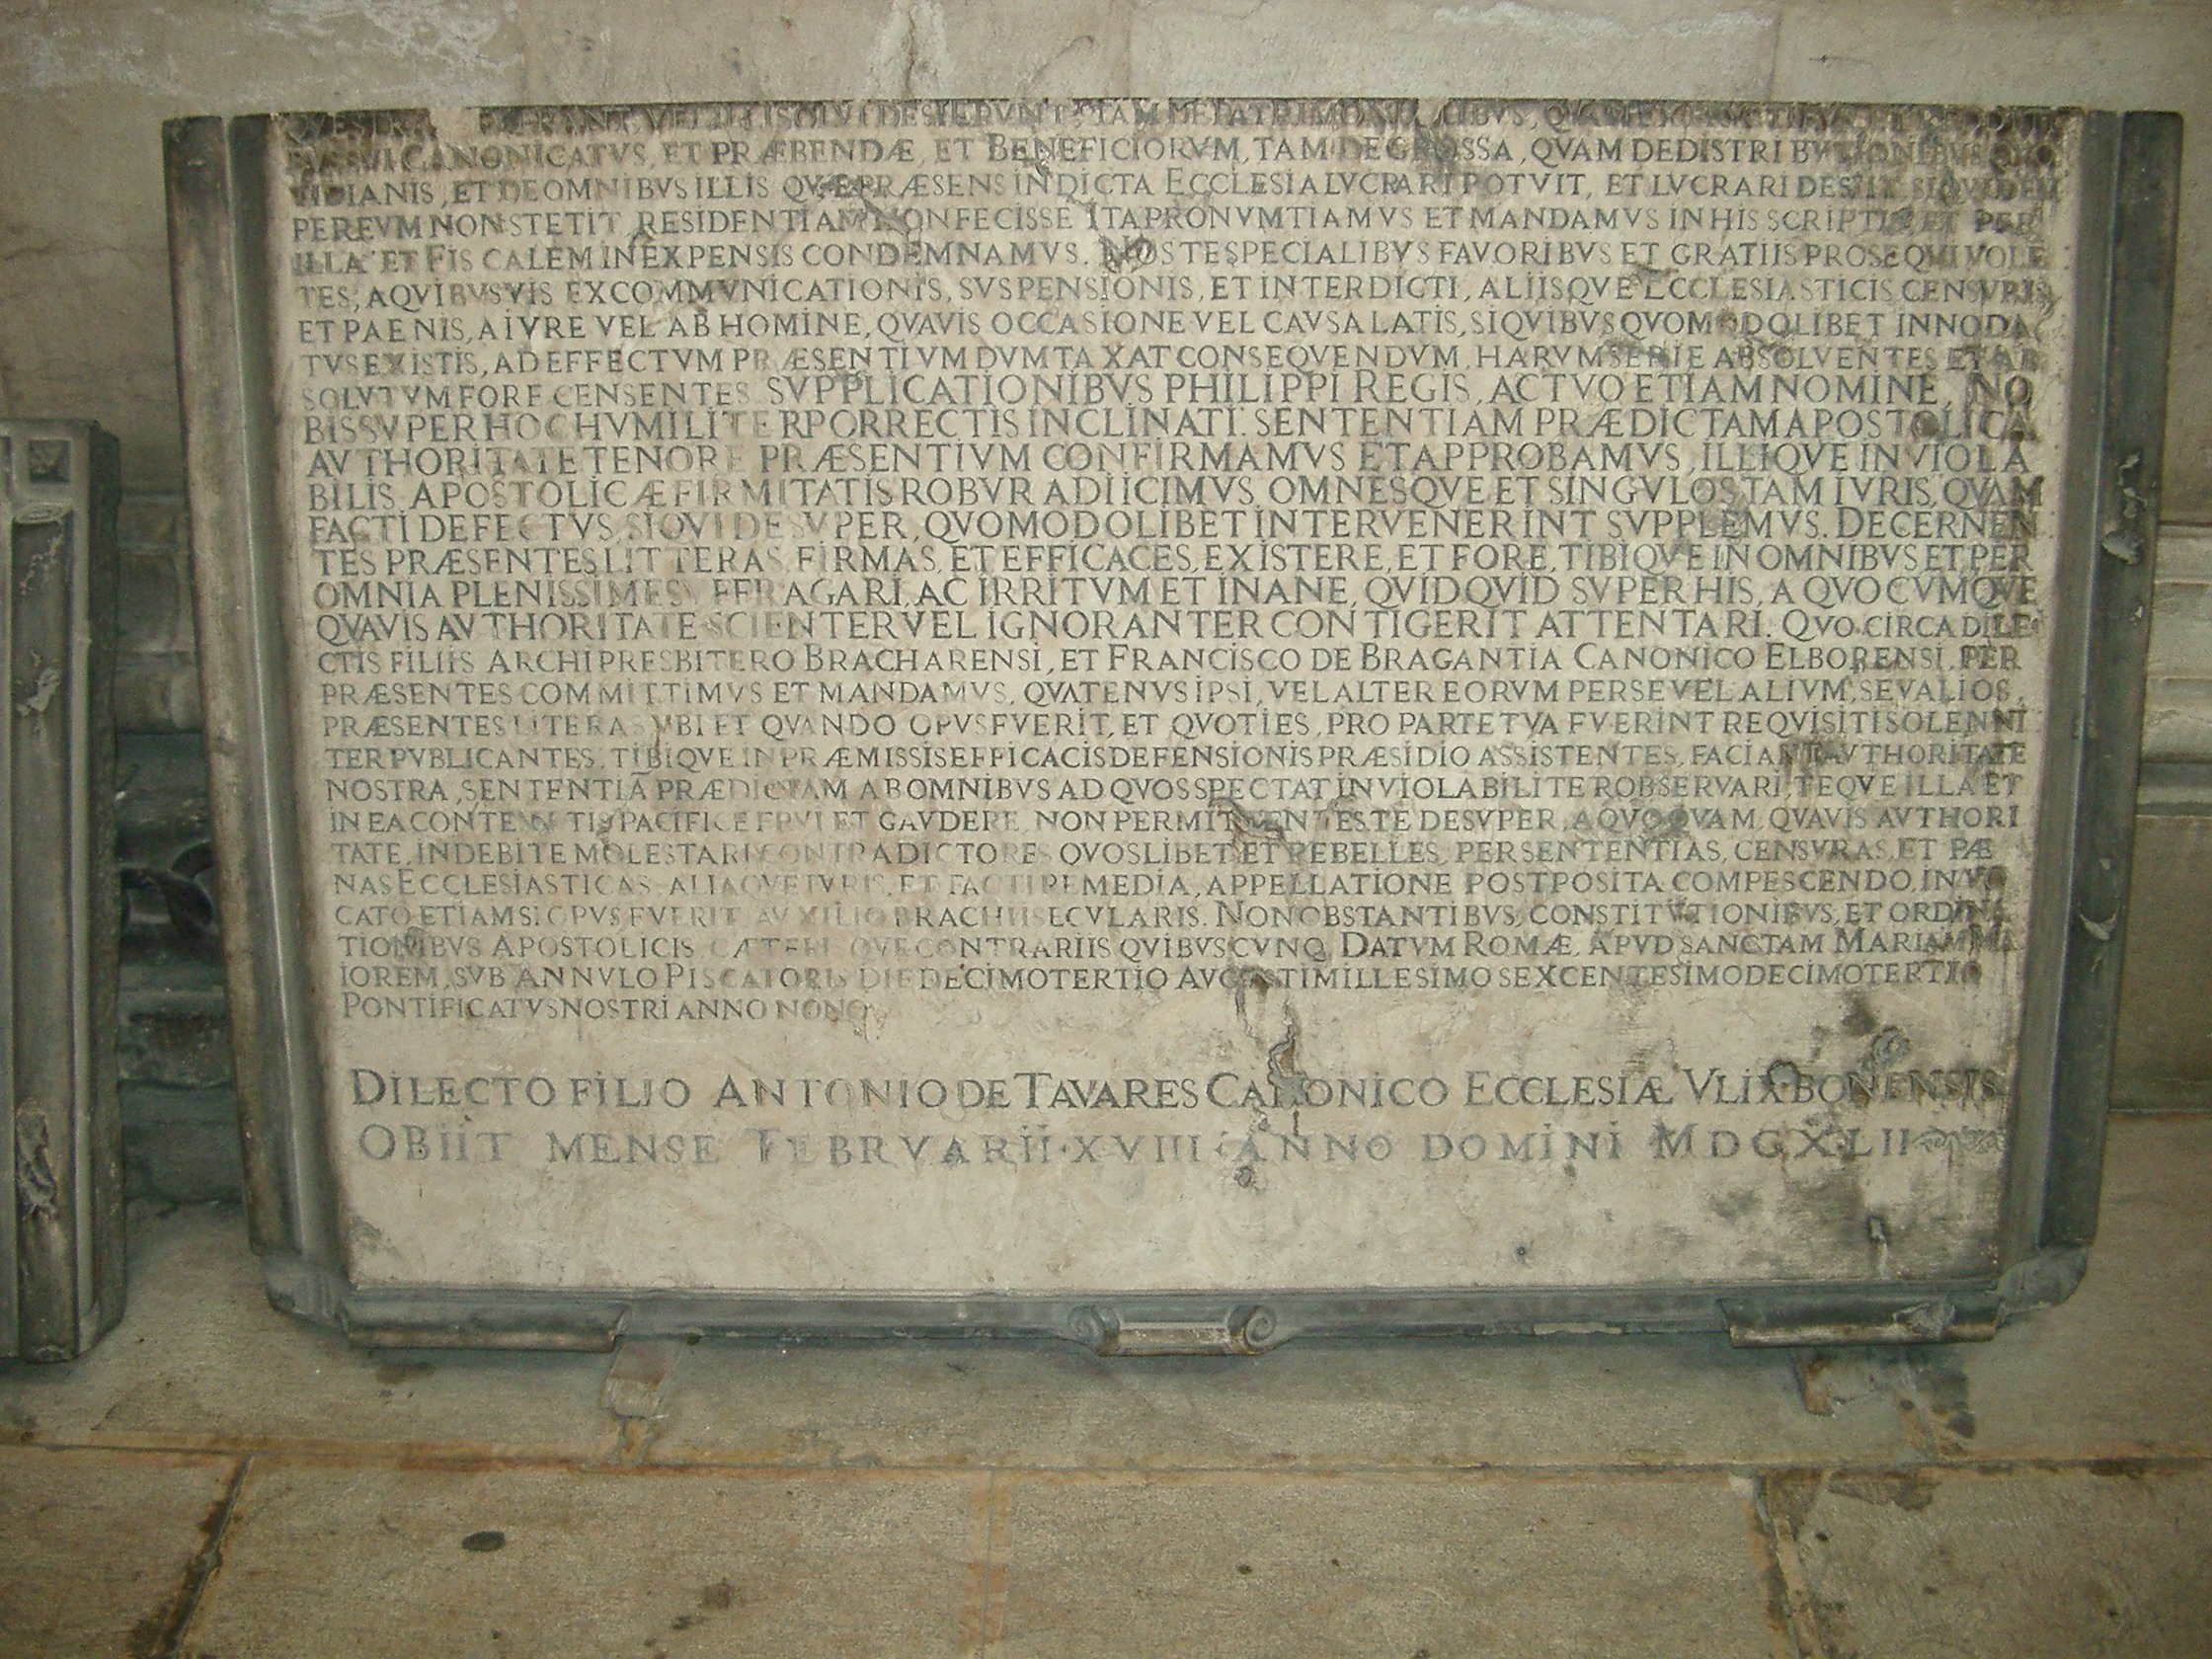 FUERANT, VEL DESIERUNT TAM DE PATRIMONIALIBUS,
CANONICATVS, ET PRÆBENDÆ, ET BENEFICIORVM, TAM DE GROSSA, QVAM DE DISTRIBVTIONIBVS QVO
TIDIANIS, ET DE OMNIBVS ILLIS QVÆ PRÆSENS IN DICTA ECCLESIA LVCRARI POTVIT, ET LVCRARI DESIIT SIQVIDEM
PER EVM NON STETIT RESIDENTIAM NON FECISSE ITA PRONVMTIAMVS ET MANDAMVS IN HIS SCRIPTIS ET PER
ILLA ET FISCALEM IN EXPENSIS CONDEMNAMVS. NOS TE SPECIALIBVS FAVORIBVS ET GRATIIS PROSEQVI VOLE
TES, A QVIBVSVIS EXCOMMVNICATIONIS, SVSPENSIONIS, ET INTERDICTI, ALIISQVE ECCLESIASTICIS CENSVRIS
ET PAENIS, A IVRE VEL AB HOMINE, QVAVIS OCCASIONE VEL CAVSA LATIS, SI QVIBVS QVOMODOLIBET INNODA
TVS EXISTIS, AD EFFECTVM PRÆSENTIVM DVMTAXAT CONSEQVENDVM, HARVM SERIE ABSOLVENTES ET AB
SOLVTVM FORE CENSENTES SVPPLICATIONIBVS PHILIPPI REGIS, AC TVO ETIAM NOMINE, NO
BIS SVPER HOC HVMILITER PORRECTIS INCLINATI. SENTENTIAM PRÆDICTAM APOSTOLICA
AVTHORITATE TENORE PRÆSENTIVM CONFIRMAMVS ET APPROBAMVS, ILLIQVE INVIOLA
BILIS APOSTOLICÆ FIRMITATIS ROBVR ADIICIMVS, OMNESQVE ET SINGVLOS TAM IVRIS, QVAM
FACTI DEFECTVS, SI QVI DESVPER, QVOMODOLIBET INTERVENERINT SVPPLEMVS. DECERNEN
TES PRÆSENTES LITTERAS FIRMAS, ET EFFICACES, EXISTERE, ET FORE, TIBIQVE IN OMNIBVS ET PER
OMNIA PLENISSIME SVFFRAGARI, AC IRRITVM ET INANE, QVIDQVID SVPER HIS, A QVOCVMQVE
QVAVIS AVTHORITATE SCIENTER VEL IGNORANTER CONTIGERIT ATTENTARI. QVO CIRCA DILE
CTIS FILIIS ARCHIPRESBITERO BRACHARENSI, ET FRANCISCO DE BRAGANTIA CANONICO ELBORENSI, PER
PRÆSENTES COMMITTIMVS ET MANDAMVS, QVATENVS IPSI, VEL ALTER EORVM PER SE VEL ALIVM, SEV ALIOS,
PRÆSENTES LITERAS VBI ET QVANDO OPVS FVERIT, ET QVOTIES, PRO PARTE TVA FVERINT REQVISITI SOLENNI
TER PVBLICANTES, TIBIQVE IN PRÆMISSIS EFFICACIS DEFENSIONIS PRÆSIDIO ASSISTENTES, FACIANT AVTHORITATE
NOSTRA, SENTENTIÃ PRÆDICTAM AB OMNIBVS AD QVOS SPECTAT INVIOLABILITER OBSERVARI, TEQVE ILLA ET
IN EA CONTENTIS PACIFICE FRVI ET GAVDERE, NON PERMITTENTES TE DESVPER, A QVOQVAM, QVAVIS AVTHORI
TATE, INDEBITE MOLESTARI CONTRADICTORES QVOSLIBET ET REBELLES, PER SENTENTIAS, CENSVRAS, ET PÆ
NAS ECCLESIASTICAS, ALIAQVE IVRIS, ET FACTI REMEDIA, APPELLATIONE POSTPOSITA COMPESCENDO, INVO
CATO ETIAM SI OPVS FVERIT AVXILIO BRACHII SECVLARIS. NON OBSTANTIBVS, CONSTITVTIONIBVS, ET ORDINA
TIONIBVS APOSTOLICIS CÆTERISQVE CONTRARIIS QVIBVSCVNQ, DATVM ROMÆ, APVD SANCTAM MARIAM MA
IOREM, SVB ANNVLO PISCATORIS DIE DECIMOTERTIO AVGVSTI MILLESIMO SEXCENTESIMO DECIMOTERTIO
PONTIFICATVS NOSTRI ANNO NONO
DILECTO FILIO ANTONIO DE TAVARES CANONICO ECCLESIÆ VLIXBONENSIS
OBIIT MENSE FEBRVARII·XVIII·ANNO DOMINI MDCXLII